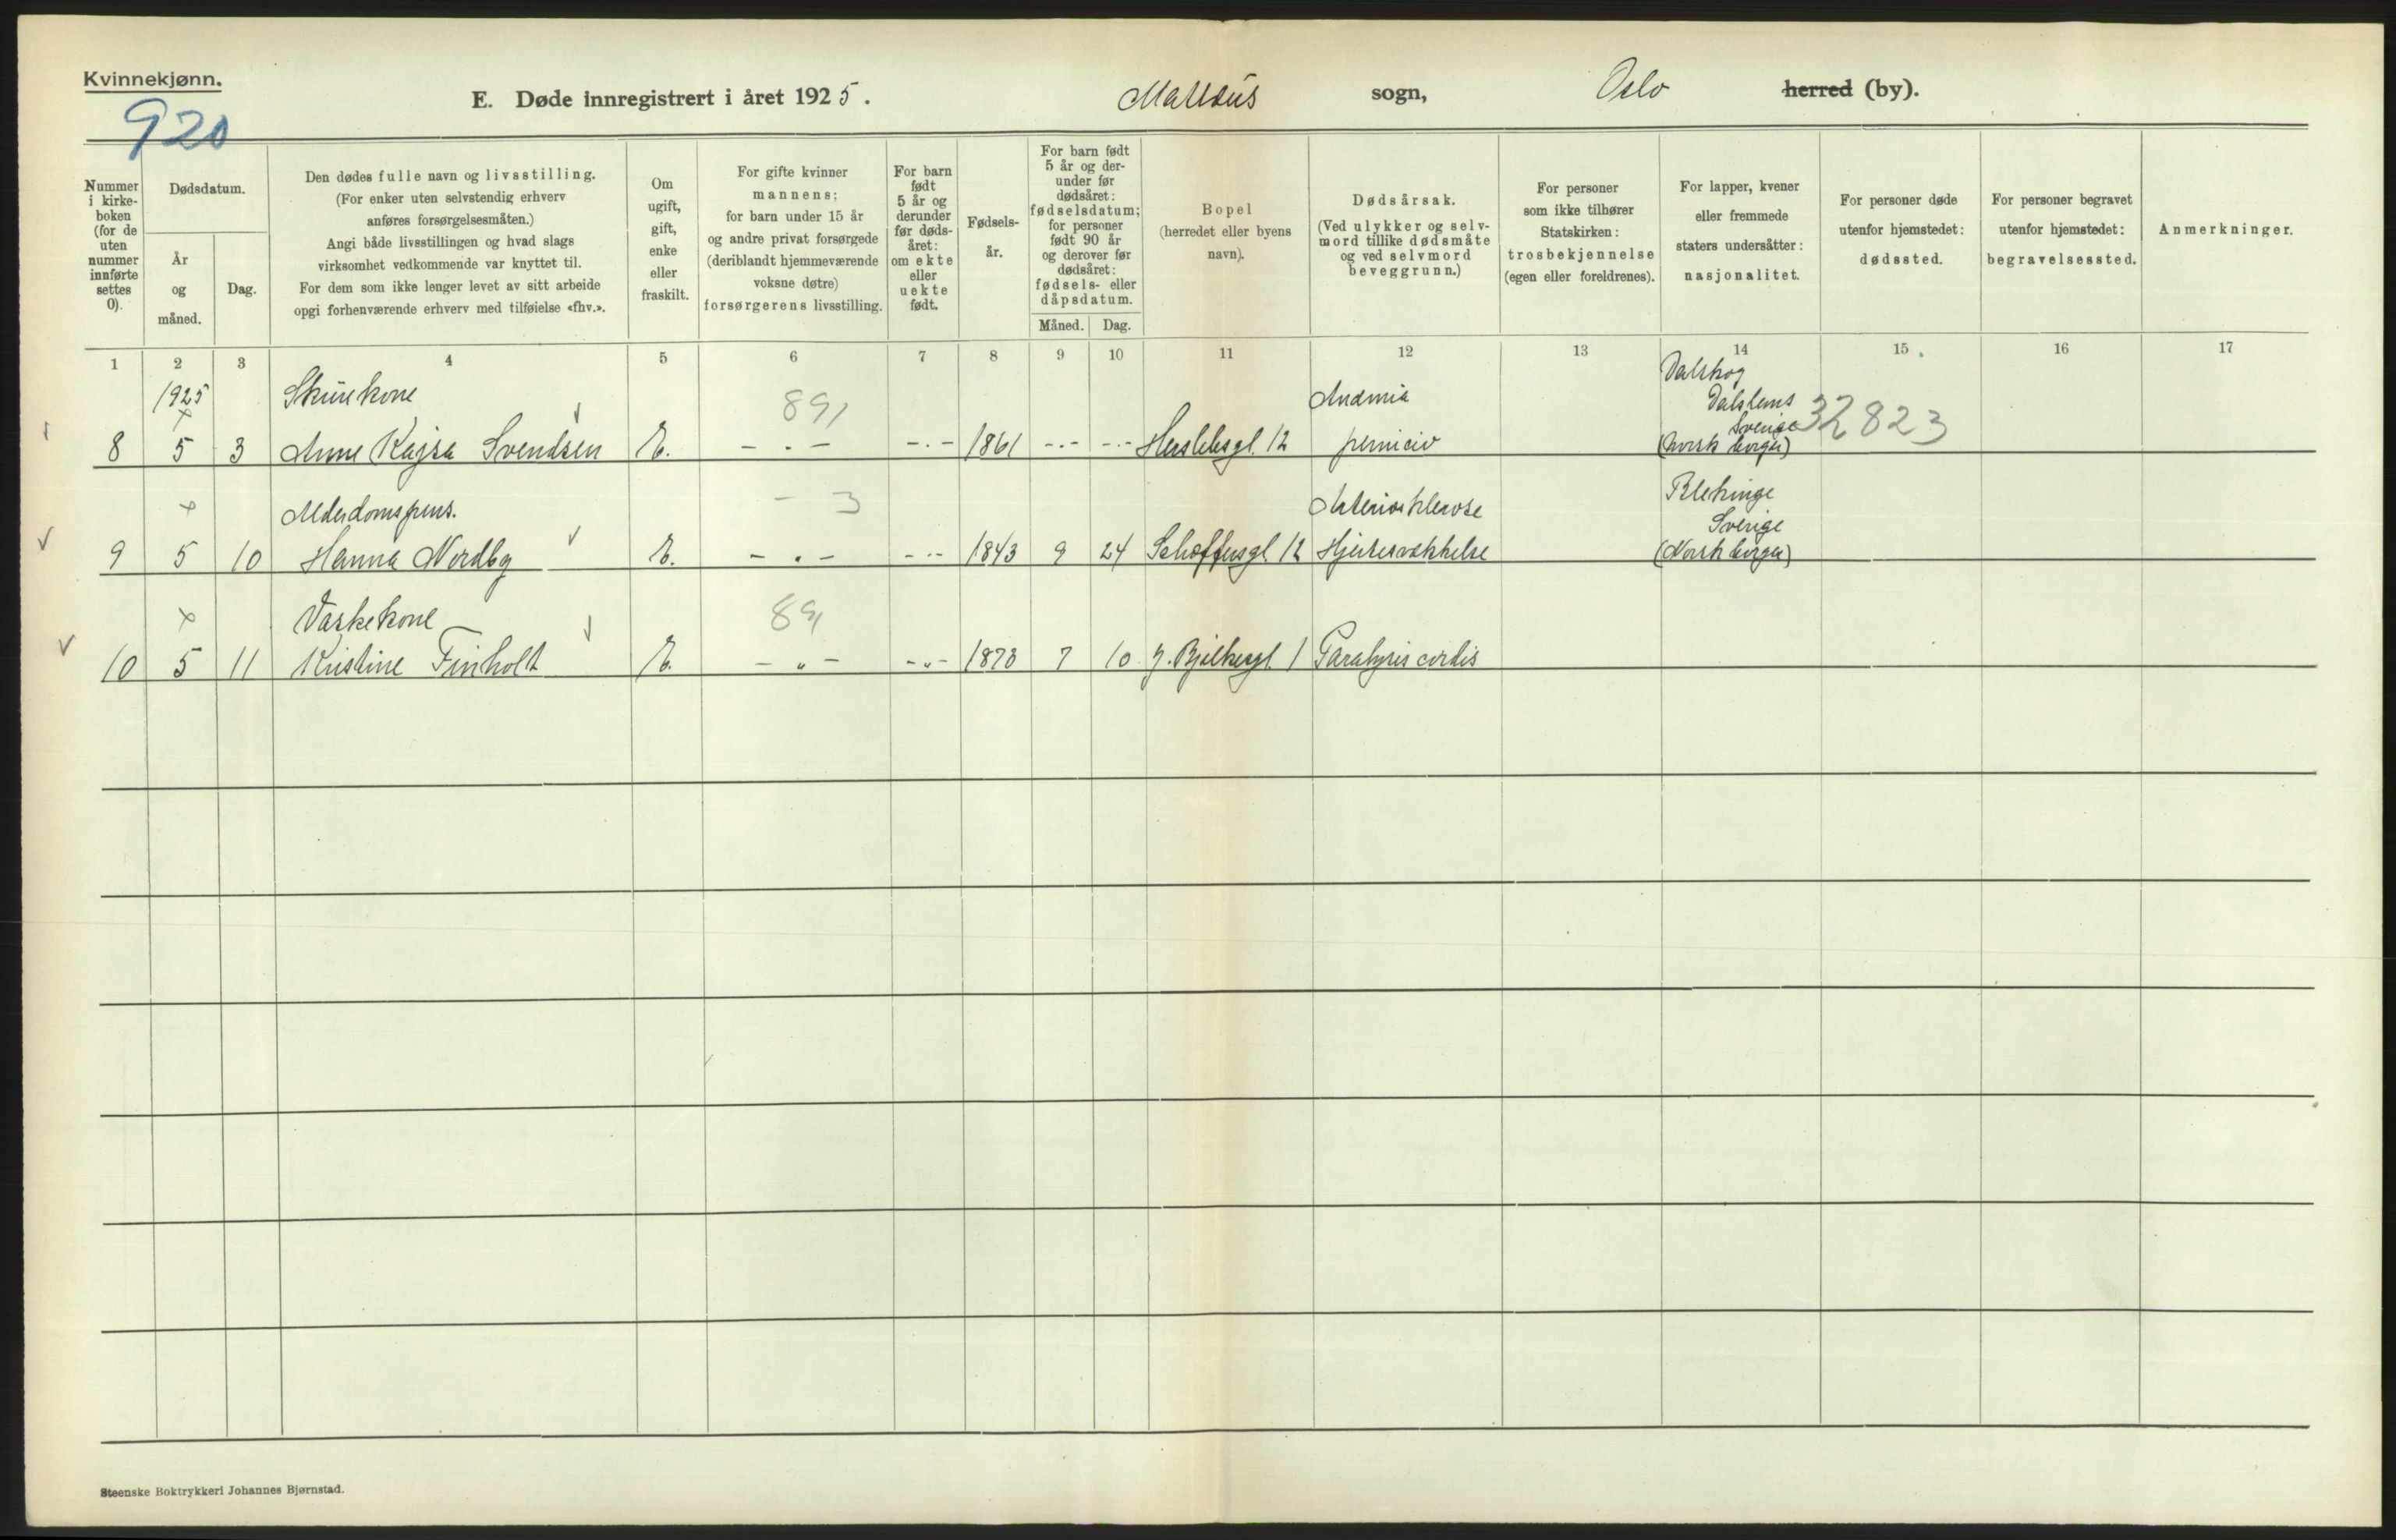 Kvinnekjønn.
920
E. Døde innregistrert i året 1925. Matteus sogn, Oslo herred (by).
Nummer
i kirke-
boken
(for de
uten
nummer
innførte
settes
0).
Dødsdatum.
År
og
måned.
Dag.
Den dødes fulle navn og livsstilling.
(For enker uten selvstendig erhverv
anføres forsørgelsesmåten.)
Angi både livsstillingen og hvad slags
virksomhet vedkommende var knyttet til.
For dem som ikke lenger levet av sitt arbeide
opgi forhenværende erhverv med tilføielse «fhv.».
Om
ugift,
gift,
enke
eller
fraskilt.
For gifte kvinner
mannens;
for barn under 15 år
og andre privat forsørgede
(deriblandt hjemmeværende
voksne døtre)
forsørgerens livsstilling.
For barn
født
5 år og
derunder
før døds-
året:
om ekte
eller
uekte
født.
Fødsels-
år.
For barn født
5 år og der-
under før
dødsåret:
fødselsdatum;
for personer
født 90 år
og derover før
dødsåret:
fødsels- eller
dåpsdatum.
Måned. Dag.
Bopel
(herredet eller byens
navn).
Dødsårsak.
(Ved ulykker og selv-
mord tillike dødsmåte
og ved selvmord
beveggrunn.)
For personer
som ikke tilhører
Statskirken:
trosbekjennelse
(egen eller foreldrenes).
For lapper, kvener
eller fremmede
staters undersåtter:
nasjonalitet.
For personer døde
utenfor hjemstedet:
dødssted.
For personer begravet
utenfor hjemstedet:
begravelsessted.
Anmerkninger.
1 2 3 4 5 6 7 8 9 10 11 12 13 14 15 16 17
1925 Skurekone 891 Anæmia Dalskog
Dalslans
Sverige 32823
8 5 3 Anne Kajsa Svendsen E. - . - - . - 1861 - . - - . - Herslebsgt. 12 perniciø (Norsk borger)
x Alderdomspens. - 3 Arteriosklerose Blekinge
Sverige
9 5 10 Hanna Nordby E. - . - - . - 1843 9 24 Schoffusgt. 12 Hjertesvækkelse (Norsk borger)
x Vaskekone 891
10 5 11 Kristine Finholt E. - „ - - „ - 1873 7 10 J. Bjelkesgt. 1 Paralysis cordis
Steenske Boktrykkeri Johannes Bjørnstad.